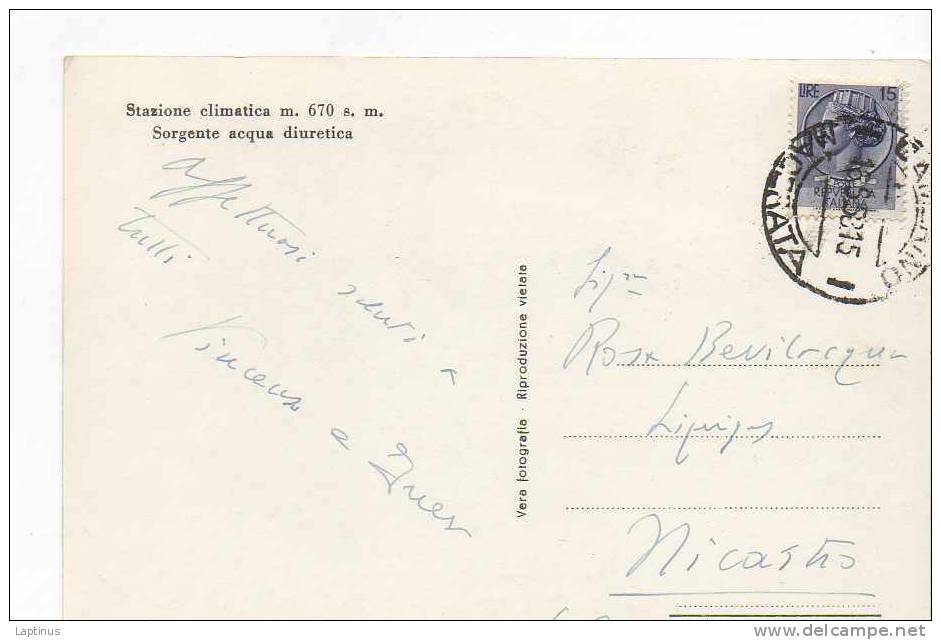 Stazione climatica m. 670 s. m.
Sorgente acqua diuretica
LIRE 15
REPVBBLICA
ITALIANA
MACERATA
Affettuosi saluti a
tutti
Vincenzo e Ines
Vera fotografia · Riproduzione vietata
Sig.ra
Rosa Bevilacqua
Nicastro
Laptinus
www.delcampe.net